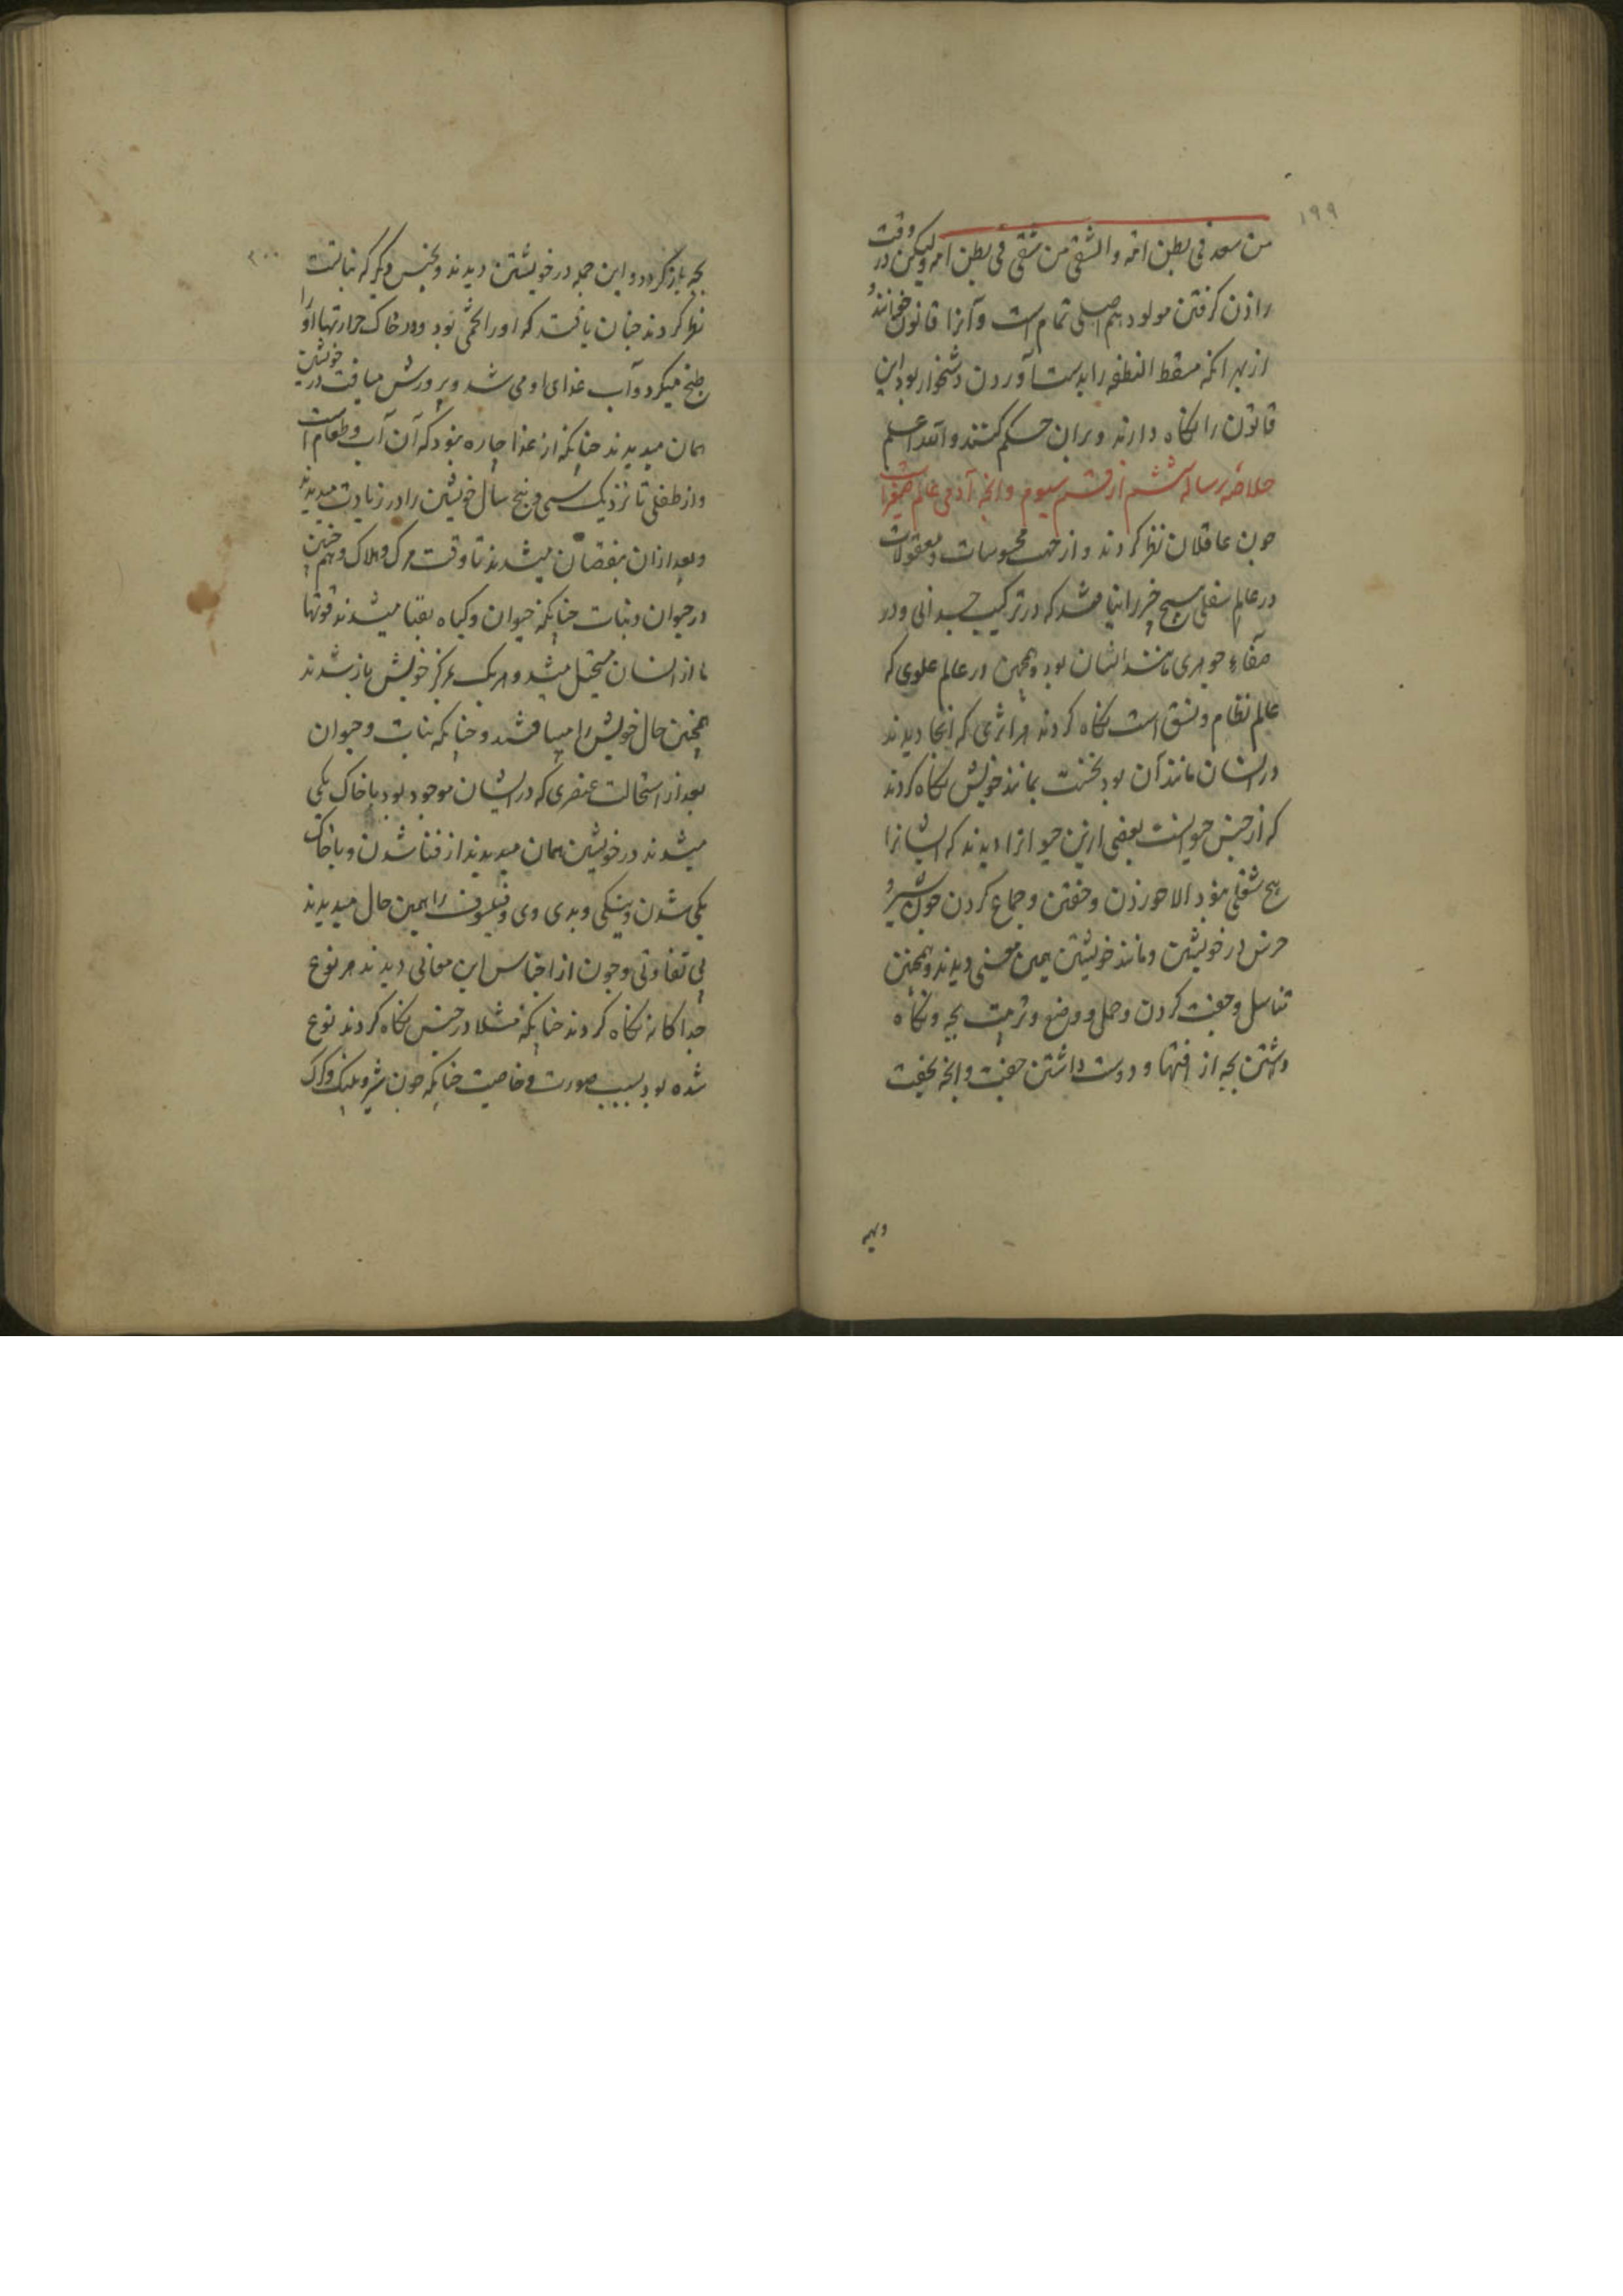 ۱۹۹
من سعد فی بطن امّه والشقی من شقی فی بطن امه ولیکن در وقت
زادن کرفتن مولود هم اصلی تمام است وآنرا قانون خوانند
از بهر آنکه مسقط النطفه را بدست آوردن دشخوار بود این
قانون را نکاه دارند وبران حکم کنند والله اعلم
خلاصهٔ رساله ششم از قسم سیوم وانجه آدمی عالم صغیر است
جون عاقلان نظر کردند واز جهت محسوسات ومعقولات
در عالم سفلی هیچ جیز را نیافتند که در ترکیب جسدانی ودر
صفاء جوهری مانند انسان بود وهمجنین در عالم علوی که
عالم نظام ونسق است نکاه کردند هر اثری که انجا دیدند
در انسان مانند آن بود نخست بمانند خویش نکاه کردند
که از جنس حیوانست بعضی ازین حیوانرا دیدند که ایشانرا
هیج شغلی نبود الا خوردن وخفتن وجماع کردن جون شیر و
خرس در خویشتن ومانند خویشتن همین معنی دیدند وهمجنین
تناسل وجفت کردن وحمل ووضع وتربیت بجه ونکاه
داشتن بجه از افتها ودوست داشتن جفت وانجه بجفت
وبه
۲۰۰
بجه باز کردد واین جمله در خویشتن دیدند وبجنس دیکر که نباتست
نظر کردند جنان یافتند که اورا تخمی بود ودر خاک حرارتها اورا
طبخ میکرد وآب غذای او می شد وپرورش میافت در خویشتن
همان میدیدند جنانکه از غذا جاره نبود که آن آب وطعام است
واز طفلی تا نزدیک سی وبنج سال خویشتن را در زیادت میدیدند
وبعد ازان بنقصان میشدند تا وقت مرک وهلاک وهم جنین
در حیوان ونبات جنانکه حیوان وکیاه بفنا میشدند قوتها
از انسان مستحیل میشد وهر یک بمرکز خویش باز شدند
همجنین حال خویش را میافتند وجنانکه نبات وحیوان
بعد از استحالت عنصری که در ایشان موجود بود با خاک یکی
میشدند در خویشتن همان میدیدند از فنا شدن وباخاک
یکی شدن ونیکی وبدی وی وفیلسوف را همین حال میدیدند
بی تفاوتی وجون از اجناس این معانی دیدند هر نوع
جداکانه نکاه کردند جنانکه مثلا در جنس نکاه کردند نوع
شده بود بسبب صورت وخاصیت جنانکه جون شیر وپلنک وکرک